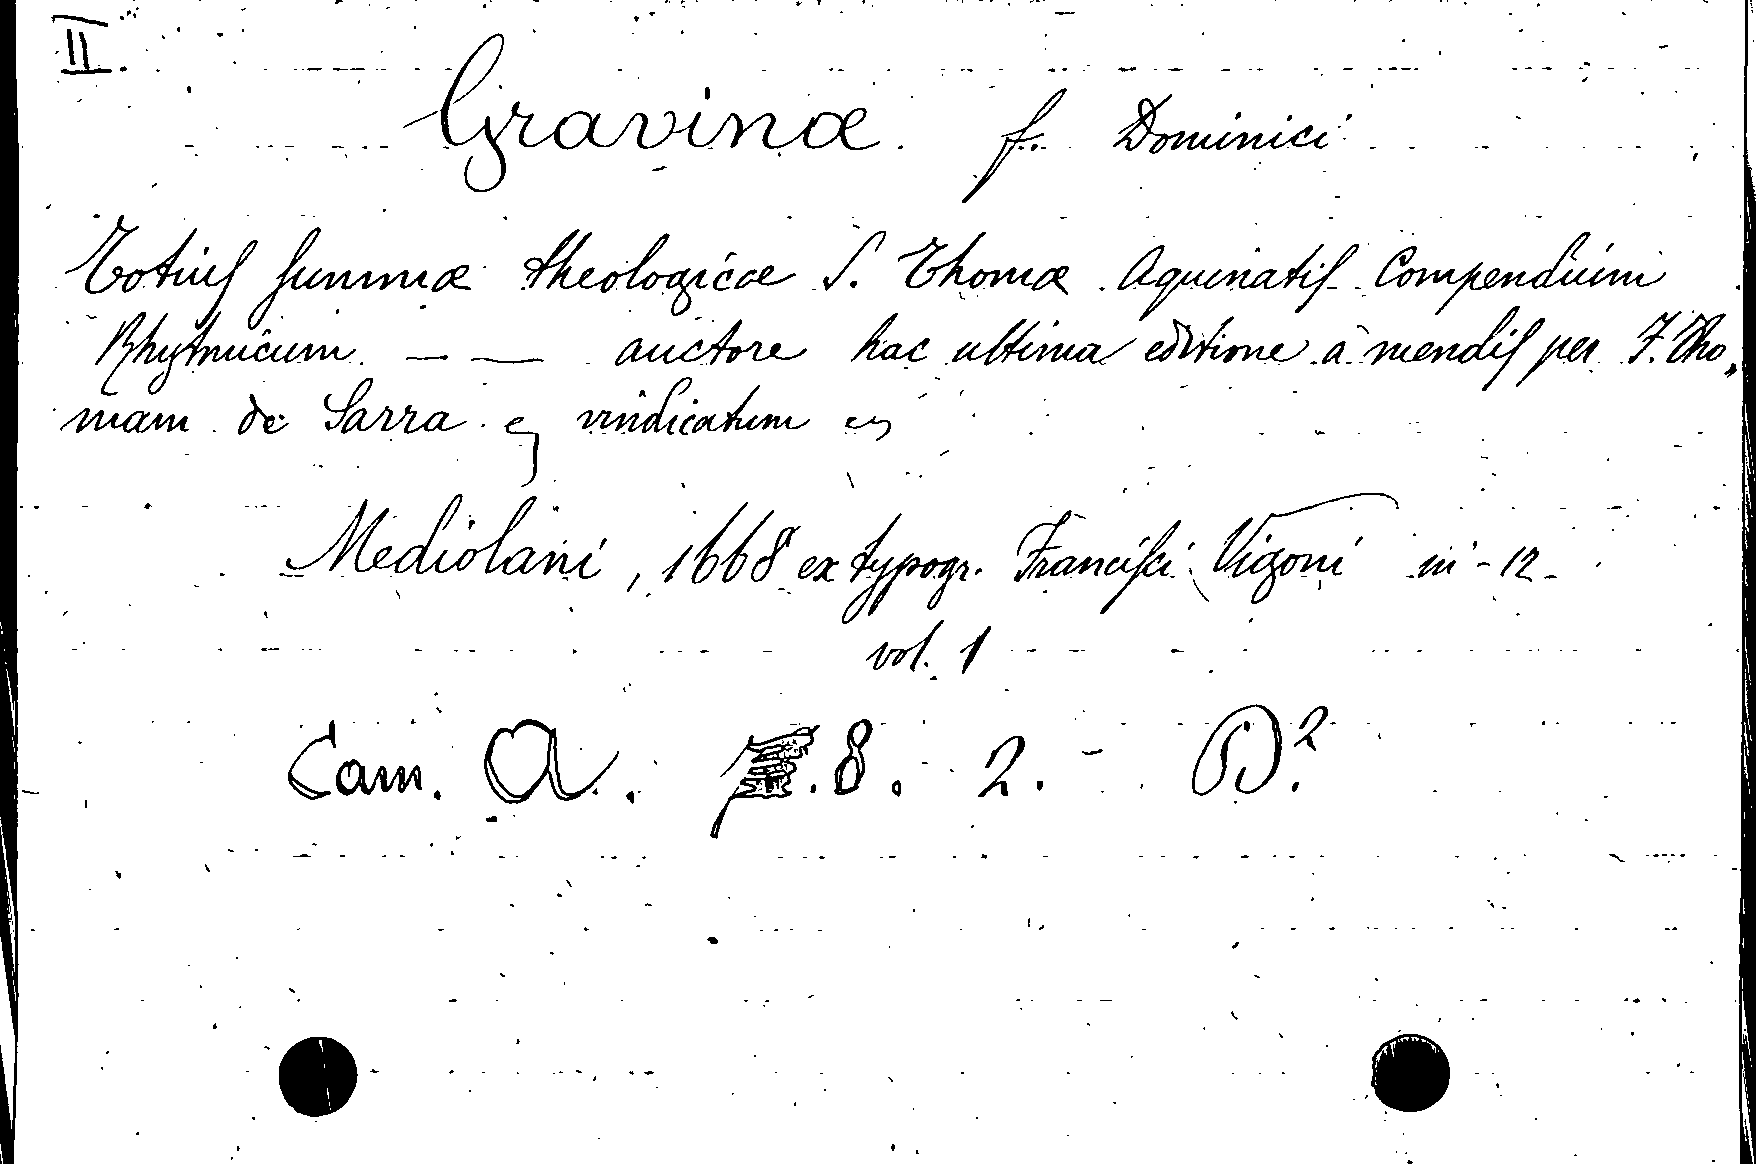 II.
Gravinæ f. Dominici
Totius summæ theologicæ S. Thomæ Aquinatis Compendium
Rhytmicum — — auctore hac ultima editione a mendis per F. Tho„
mam de Sarra vindicatum
Mediolani, 1668 ex typogr. Francisci Vigoni in - 12 -
vol. 1
Cam. A. 8. 2. - D².